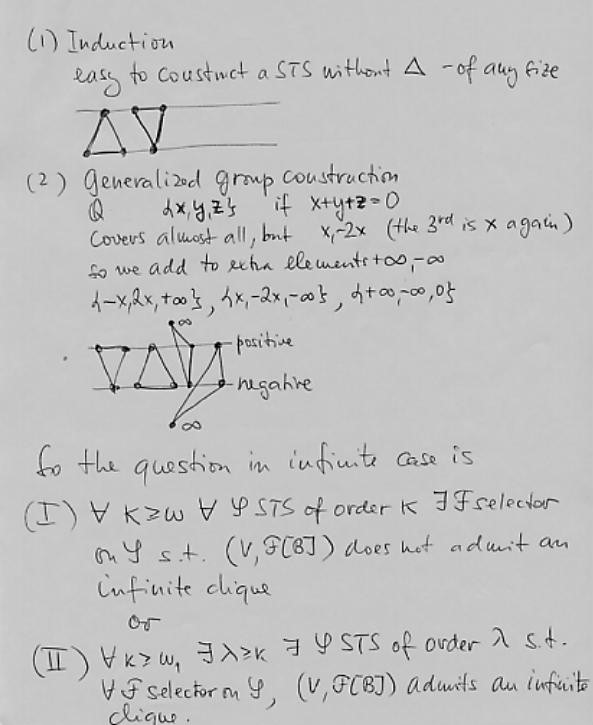 (1) Induction
easy to construct a STS without Δ - of any size
(2) Generalized group construction
Q {x,y,z} if x+y+z=0
Covers almost all, but x,-2x (the 3rd is x again)
So we add to extra elements +∞,-∞
{-x,2x,+∞}, {x,-2x,-∞}, {+∞,-∞,0}
∞
positive
negative
∞
So the question in infinite case is
(I) ∀ κ≥ω ∀ 𝒮 STS of order κ ∃ ℱ selector
on 𝒮 s.t. (V, ℱ[B]) does not admit an
infinite clique
or
(II) ∀ κ≥ω₁ ∃ λ≥κ ∃ 𝒮 STS of order λ s.t.
∀ ℱ selector on 𝒮, (V, ℱ[B]) admits an infinite
clique.